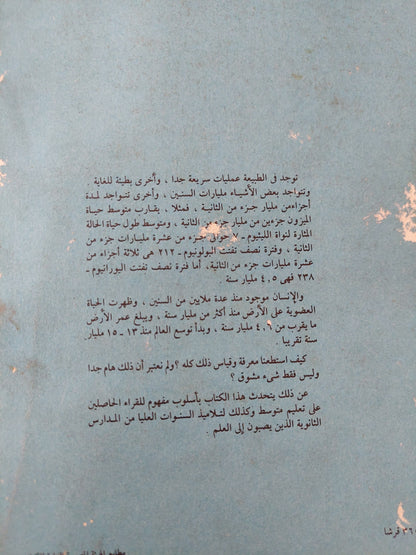 توجد فى الطبيعة عمليات سريعة جدا ، وأخرى بطيئة للغاية .
وتتواجد بعض الأشياء مليارات السنين ، وأخرى تتواجد لمدة
أجزاء من مليار جزء من الثانية ، فمثلا ، يقارب متوسط حياة
الميزون جزءين من مليار جزء من الثانية ، ومتوسط طول حياة الحالة
المثارة لنواة الليثيوم - ٧ حوالى جزء من عشرة مليارات جزء من
الثانية ، وفترة نصف تفتت البولونيوم - ٢١٢ هى ثلاثة أجزاء من
عشرة مليارات جزء من الثانية، أما فترة نصف تفتت اليورانيوم -
٢٣٨ فهى ٤,٥ مليار سنة .
والإنسان موجود منذ عدة ملايين من السنين ، وظهرت الحياة
العضوية على الأرض منذ أكثر من مليار سنة ، ويبلغ عمر الأرض
ما يقرب من ٤,٩ مليار سنة ، وبدأ توسع العالم منذ ١٣ - ١٥ مليار
سنة تقريبا .
كيف استطعنا معرفة وقياس ذلك كله ؟ ولم نعتبر أن ذلك هام جدا
وليس فقط شىء مشوق ؟
عن ذلك يتحدث هذا الكتاب بأسلوب مفهوم للقراء الحاصلين
على تعليم متوسط وكذلك لتلاميذ السنوات العليا من المدارس
الثانوية الذين يصبون إلى العلم .
قرشا